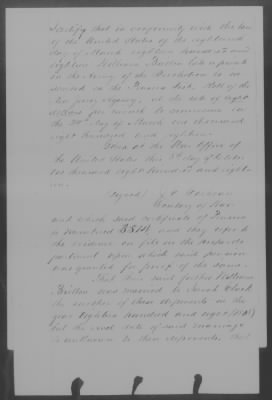 Certify that in conformity with the law
of the United States of the eighteenth
day of March eighteen hundred and
eighteen William late a private
in the Army of the Revolution is in-
scribed on the Pension List, Roll of the
Agency at the rate of eight
dollars per month to commence on
the day of March one thousand
eight hundred and eighteen.
Given at the War Office of
the United States this day of October
one thousand eight hundred and eighteen
(Signed) J C Calhoun
Secretary of War
and which said certificate of Pension
is numbered and they refer to
the evidence on file in the
partment upon which said pension
was granted for proof of the same.
That their said father William
was married to Sarah Clark
the mother of these deponents in the
year eighteen hundred and eight (1808)
but the exact date of said marriage
is unknown to these deponents. That